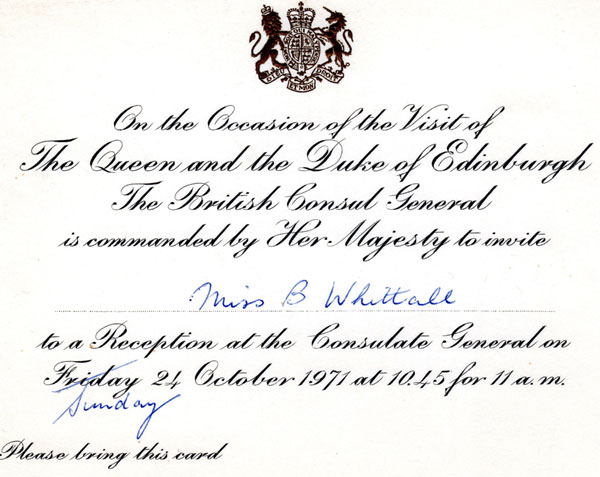 On the Occasion of the Visit of
The Queen and the Duke of Edinburgh
The British Consul General
is commanded by Her Majesty to invite
Miss B Whittall
to a Reception at the Consulate General on
Friday 24 October 1971 at 10.45 for 11 a.m.
Sunday
Please bring this card